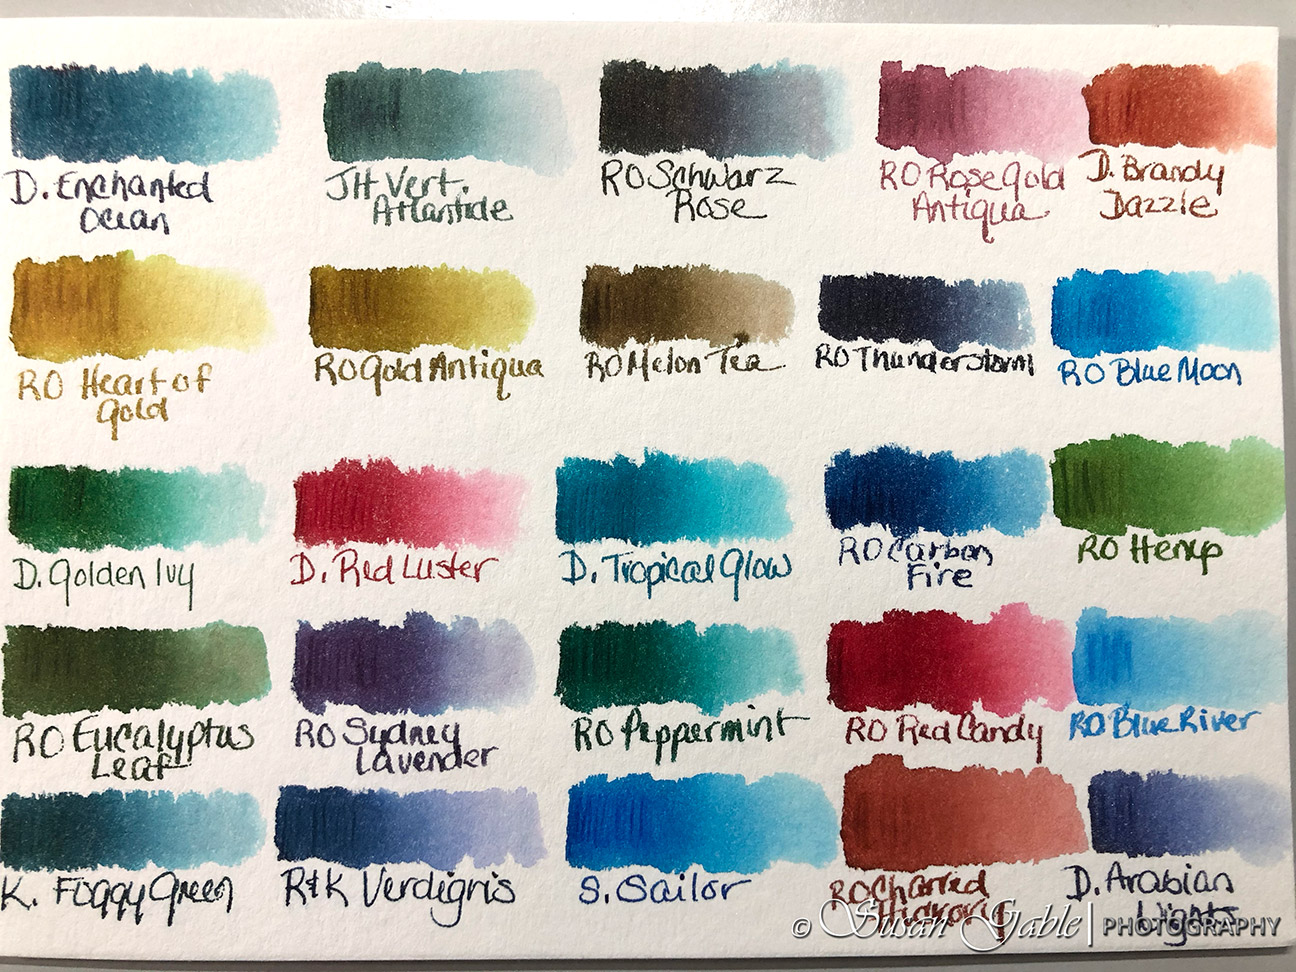 D. Enchanted
Ocean
JH Vert.
Atlantide
RO Schwarz
Rose
RO Rose Gold
Antiqua
D. Brandy
Dazzle
RO Heart of
Gold
RO Gold Antiqua
RO Melon Tea
RO Thunderstorm
RO Blue Moon
D. Golden Ivy
D. Red Luster
D. Tropical Glow
RO Carbon
Fire
RO Hemp
RO Eucalyptus
Leaf
RO Sydney
Lavender
RO Peppermint
RO Red Candy
RO Blue River
K. Foggy Green
R&K Verdigris
S. Sailor
RO Charred
Hickory
D. Arabian
Nights
© Susan Gable | PHOTOGRAPHY